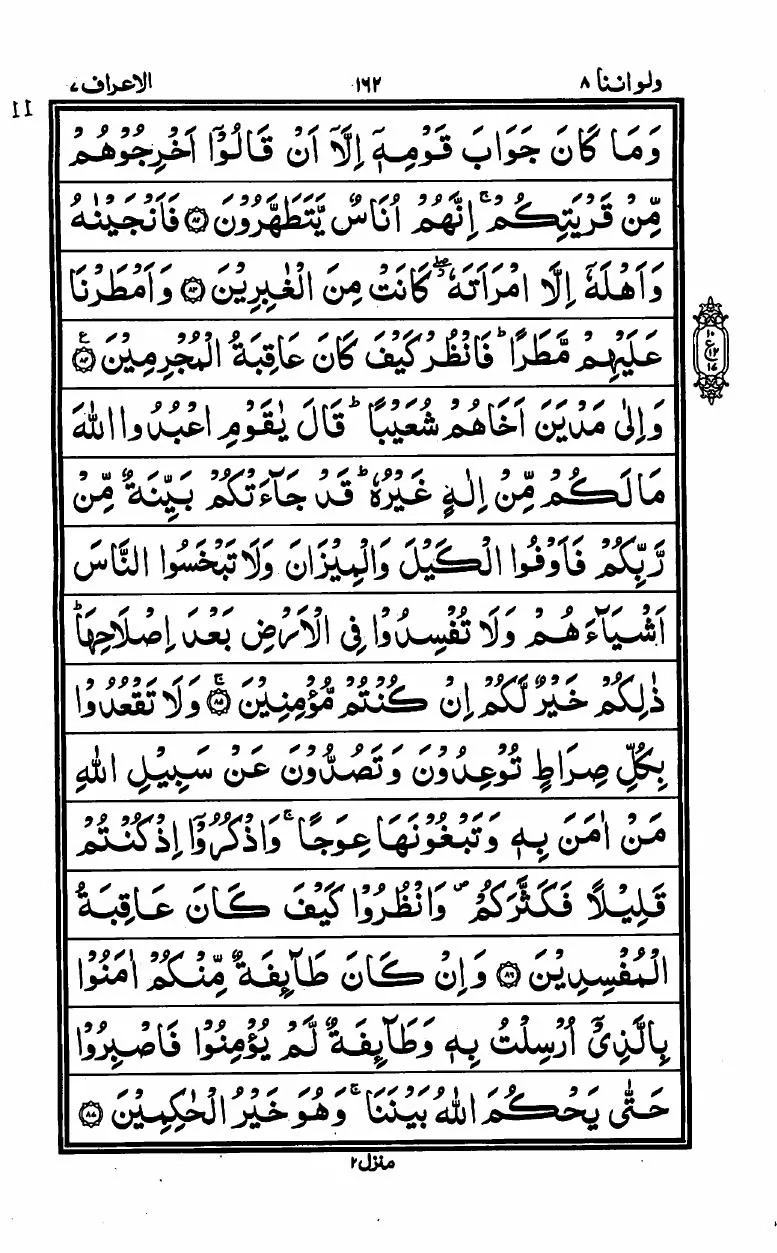 ولو اننا ٨
١٦٢
الاعراف ٧
11
وَمَا كَانَ جَوَابَ قَوْمِهٖۤ اِلَّاۤ اَنْ قَالُوْۤا اَخْرِجُوْهُمْ
مِّنْ قَرْيَتِكُمْ ۚ اِنَّهُمْ اُنَاسٌ يَّتَطَهَّرُوْنَ ﴿٨٢﴾ فَاَنْجَيْنٰهُ
وَاَهْلَهٗۤ اِلَّا امْرَاَتَهٗ ۖ كَانَتْ مِنَ الْغٰبِرِيْنَ ﴿٨٣﴾ وَاَمْطَرْنَا
عَلَيْهِمْ مَّطَرًا ؕ فَانْظُرْ كَيْفَ كَانَ عَاقِبَةُ الْمُجْرِمِيْنَ ﴿٨٤﴾ ع
١٠
ع
١٢
وَاِلٰى مَدْيَنَ اَخَاهُمْ شُعَيْبًا ؕ قَالَ يٰقَوْمِ اعْبُدُوا اللّٰهَ
مَا لَكُمْ مِّنْ اِلٰهٍ غَيْرُهٗ ؕ قَدْ جَآءَتْكُمْ بَيِّنَةٌ مِّنْ
رَّبِّكُمْ فَاَوْفُوا الْكَيْلَ وَالْمِيْزَانَ وَلَا تَبْخَسُوا النَّاسَ
اَشْيَآءَهُمْ وَلَا تُفْسِدُوْا فِى الْاَرْضِ بَعْدَ اِصْلَاحِهَا ؕ
ذٰلِكُمْ خَيْرٌ لَّكُمْ اِنْ كُنْتُمْ مُّؤْمِنِيْنَ ﴿٨٥﴾ ۚ وَلَا تَقْعُدُوْا
بِكُلِّ صِرَاطٍ تُوْعِدُوْنَ وَتَصُدُّوْنَ عَنْ سَبِيْلِ اللّٰهِ
مَنْ اٰمَنَ بِهٖ وَتَبْغُوْنَهَا عِوَجًا ۚ وَاذْكُرُوْۤا اِذْ كُنْتُمْ
قَلِيْلًا فَكَثَّرَكُمْ ۪ وَانْظُرُوْا كَيْفَ كَانَ عَاقِبَةُ
الْمُفْسِدِيْنَ ﴿٨٦﴾ وَاِنْ كَانَ طَآئِفَةٌ مِّنْكُمْ اٰمَنُوْا
بِالَّذِىْۤ اُرْسِلْتُ بِهٖ وَطَآئِفَةٌ لَّمْ يُؤْمِنُوْا فَاصْبِرُوْا
حَتّٰى يَحْكُمَ اللّٰهُ بَيْنَنَا ۚ وَهُوَ خَيْرُ الْحٰكِمِيْنَ ﴿٨٧﴾
منزل ٢